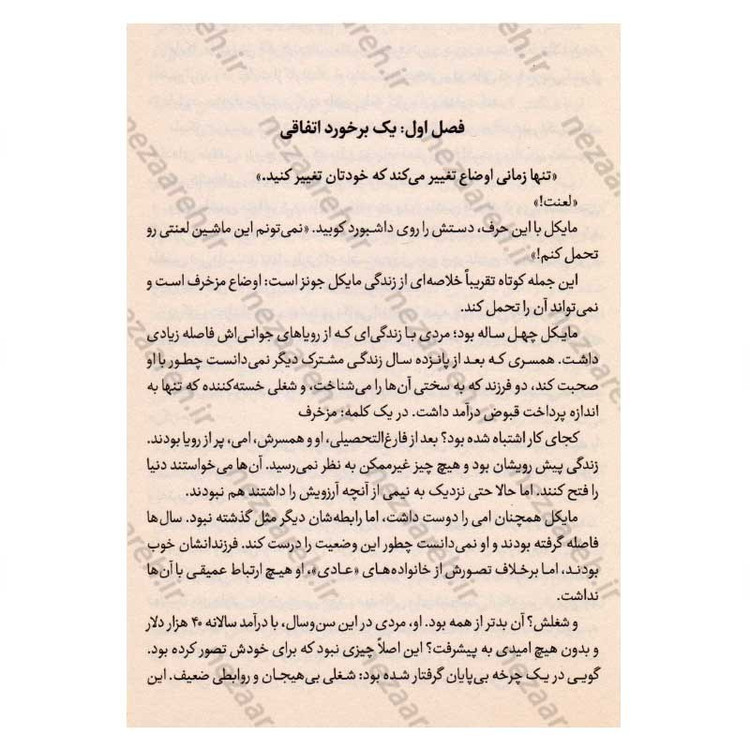 فصل اول: یک برخورد اتفاقی
«تنها زمانی اوضاع تغییر می‌کند که خودتان تغییر کنید.»
«لعنت!»
مایکل با این حرف، دستش را روی داشبورد کوبید. «نمی‌تونم این ماشین لعنتی رو
تحمل کنم!»
این جمله کوتاه تقریباً خلاصه‌ای از زندگی مایکل جونز است: اوضاع مزخرف است و
نمی‌تواند آن را تحمل کند.
مایکل چهل ساله بود؛ مردی با زندگی‌ای که از رویاهای جوانی‌اش فاصله زیادی
داشت. همسری که بعد از پانزده سال زندگی مشترک دیگر نمی‌دانست چطور با او
صحبت کند، دو فرزند که به سختی آن‌ها را می‌شناخت، و شغلی خسته‌کننده که تنها به
اندازه پرداخت قبوض درآمد داشت. در یک کلمه: مزخرف
کجای کار اشتباه شده بود؟ بعد از فارغ‌التحصیلی، او و همسرش، امی، پر از رویا بودند.
زندگی پیش رویشان بود و هیچ چیز غیرممکن به نظر نمی‌رسید. آن‌ها می‌خواستند دنیا
را فتح کنند. اما حالا حتی نزدیک به نیمی از آنچه آرزویش را داشتند هم نبودند.
مایکل همچنان امی را دوست داشت، اما رابطه‌شان دیگر مثل گذشته نبود. سال‌ها
فاصله گرفته بودند و او نمی‌دانست چطور این وضعیت را درست کند. فرزندانشان خوب
بودند، اما برخلاف تصورش از خانواده‌های «عادی»، او هیچ ارتباط عمیقی با آن‌ها
نداشت.
و شغلش؟ آن بدتر از همه بود. او، مردی در این سن‌وسال، با درآمد سالانه ۴۰ هزار دلار
و بدون هیچ امیدی به پیشرفت؟ این اصلاً چیزی نبود که برای خودش تصور کرده بود.
گویی در یک چرخه بی‌پایان گرفتار شده بود: شغلی بی‌هیجان و روابطی ضعیف. این
nezaareh.ir